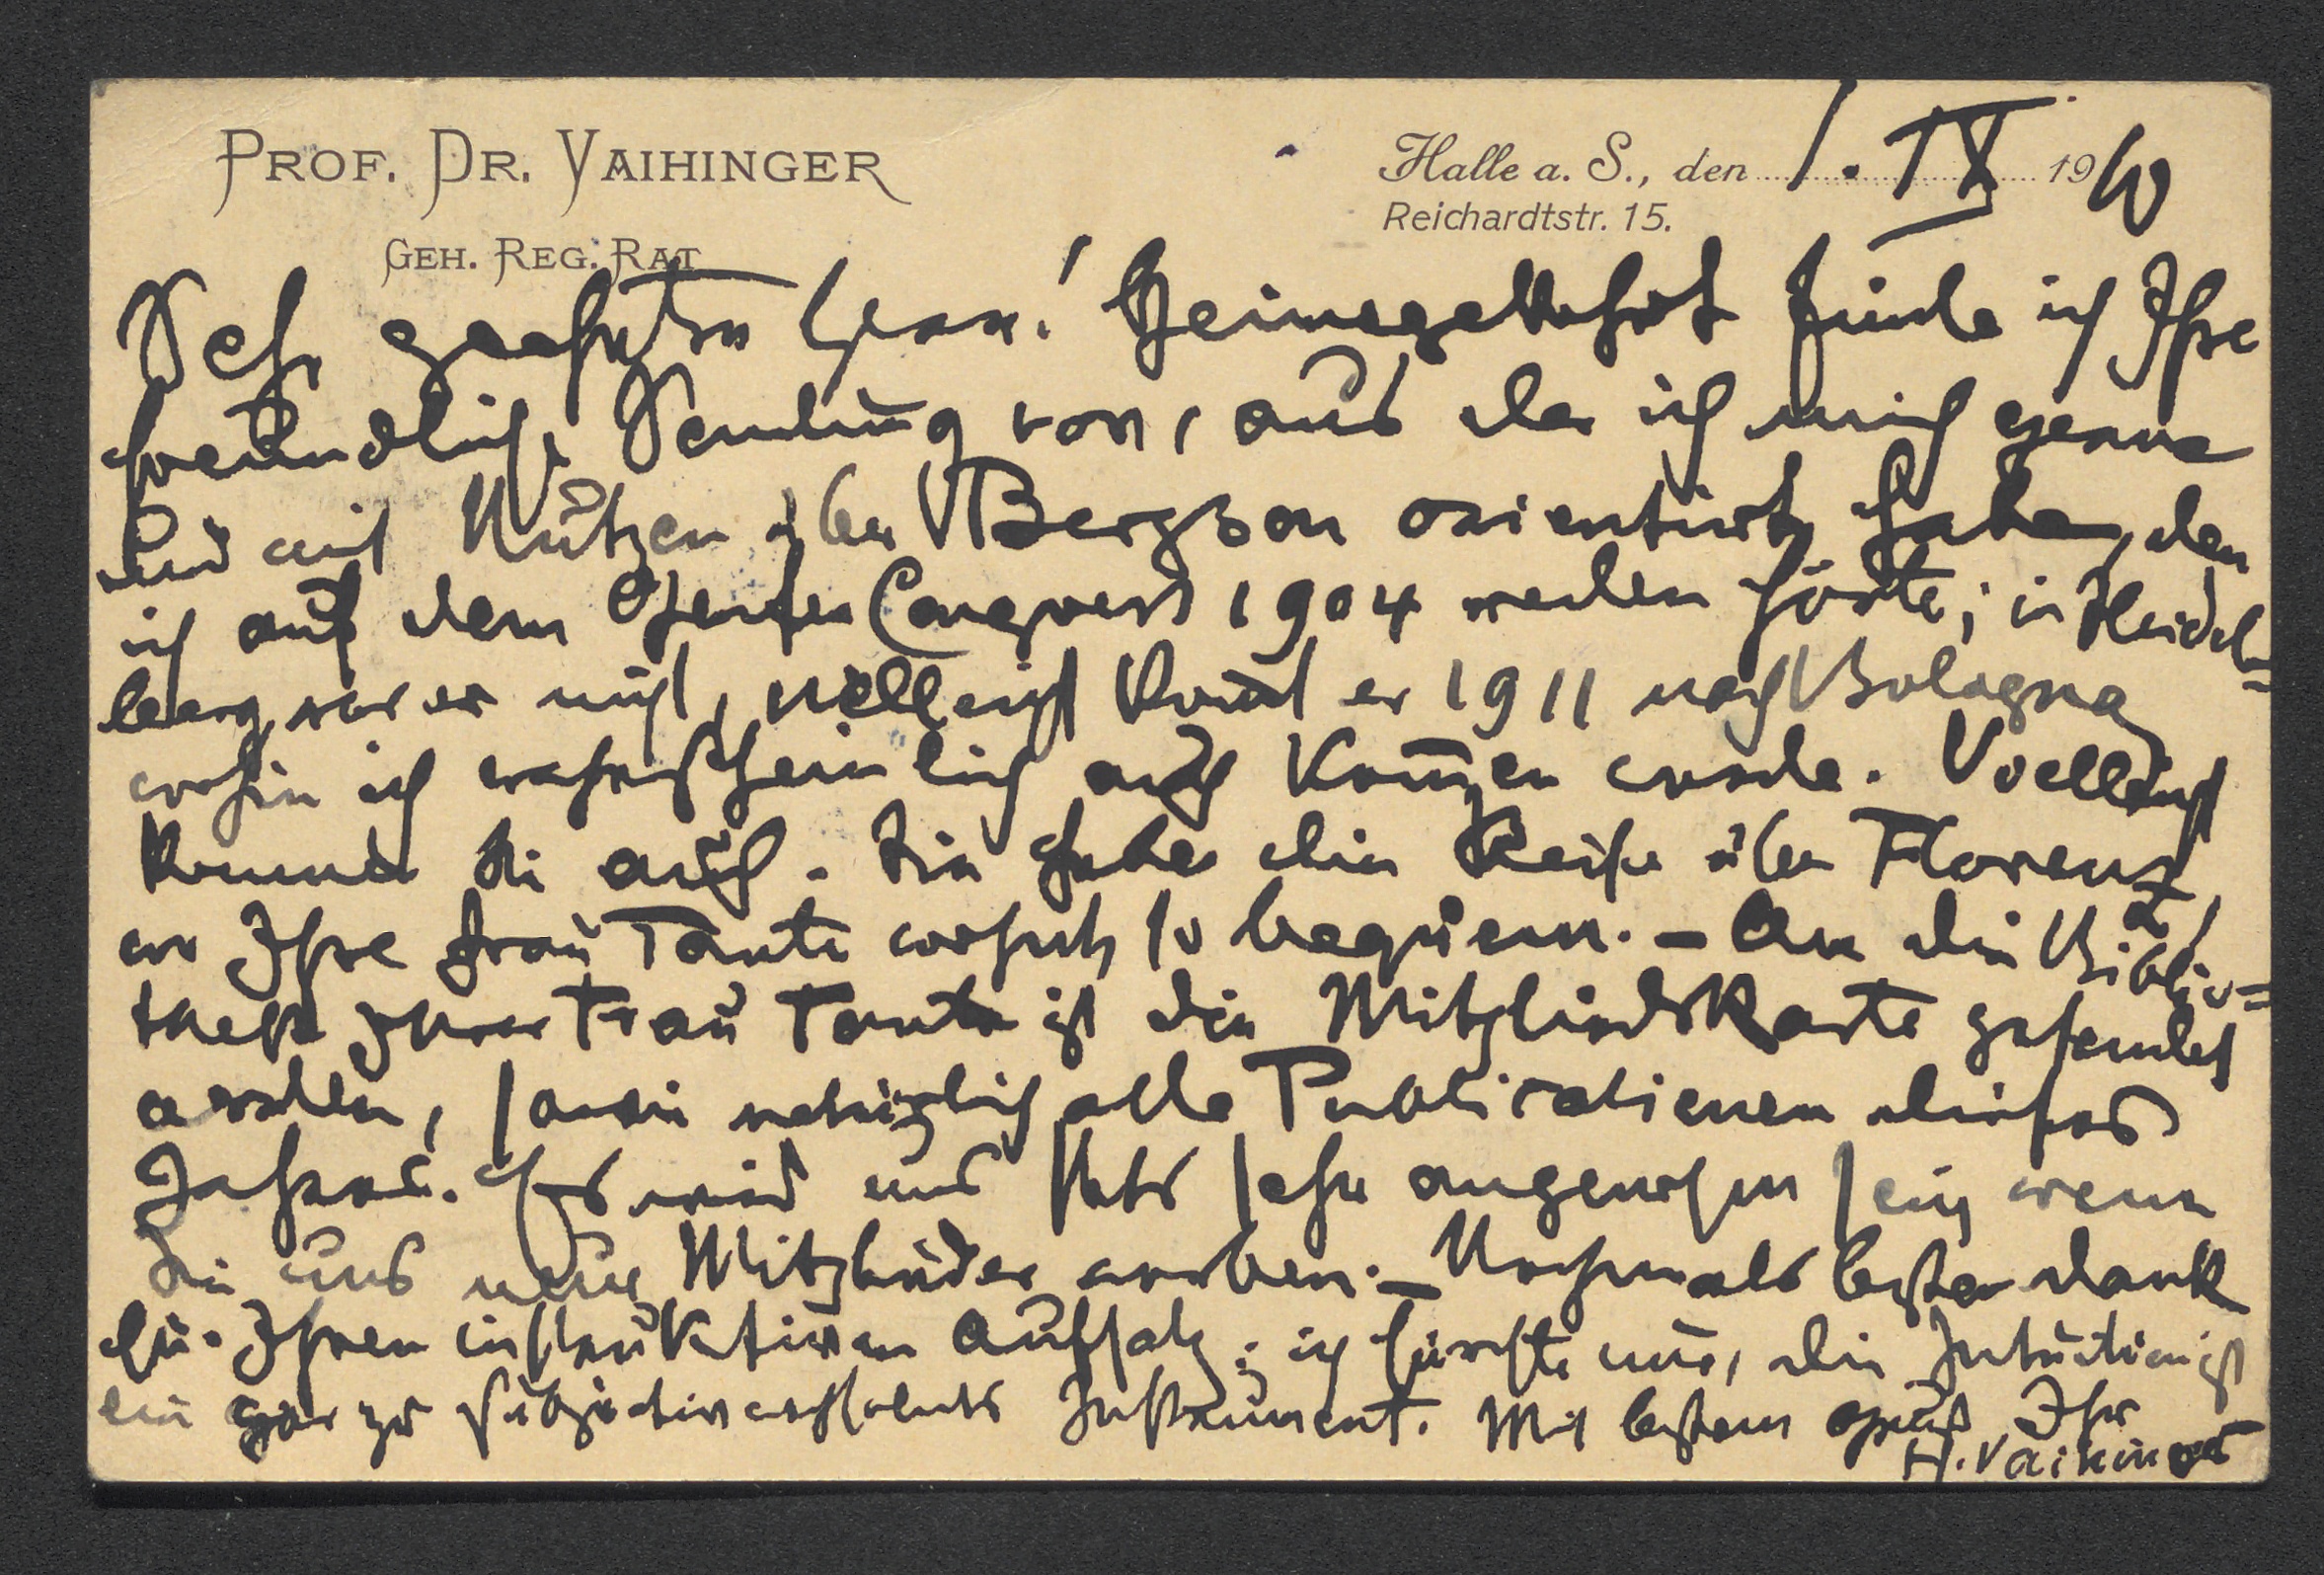 PROF. DR. VAIHINGER
GEH. REG. RAT
Halle a. S., den 1. IX 1910
Reichardtstr. 15.
Sehr geehrter Herr! Heimgekehrt finde ich Ihre
freundliche Sendung vor, aus der ich mich gerne
und mit Nutzen über Bergson orientirt habe, den
ich auf dem Genfer Congress 1904 reden hörte; in Heidel=
berg war er nicht, vielleicht kommt er 1911 nach Bologna
wohin ich wahrscheinlich auch kommen werde. Vielleicht
kommen Sie auch. Sie haben die Reise über Florenz,
wo Ihre Frau Tante wohnt, so bequem. – An die Biblio=
thek Ihrer Frau Tante ist die Mitgliedskarte gesendet
worden, sowie natürlich alle Publicationen dieses
Jahres. Es wird uns stets sehr angenehm sein, wenn
Sie uns neue Mitglieder werben. – Nochmals besten Dank
für Ihren instruktiven Aufsatz; ich fürchte nur, die Intuition ist
ein gar zu subjectives Instrument. Mit bestem Gruß Ihr
H. Vaihinger